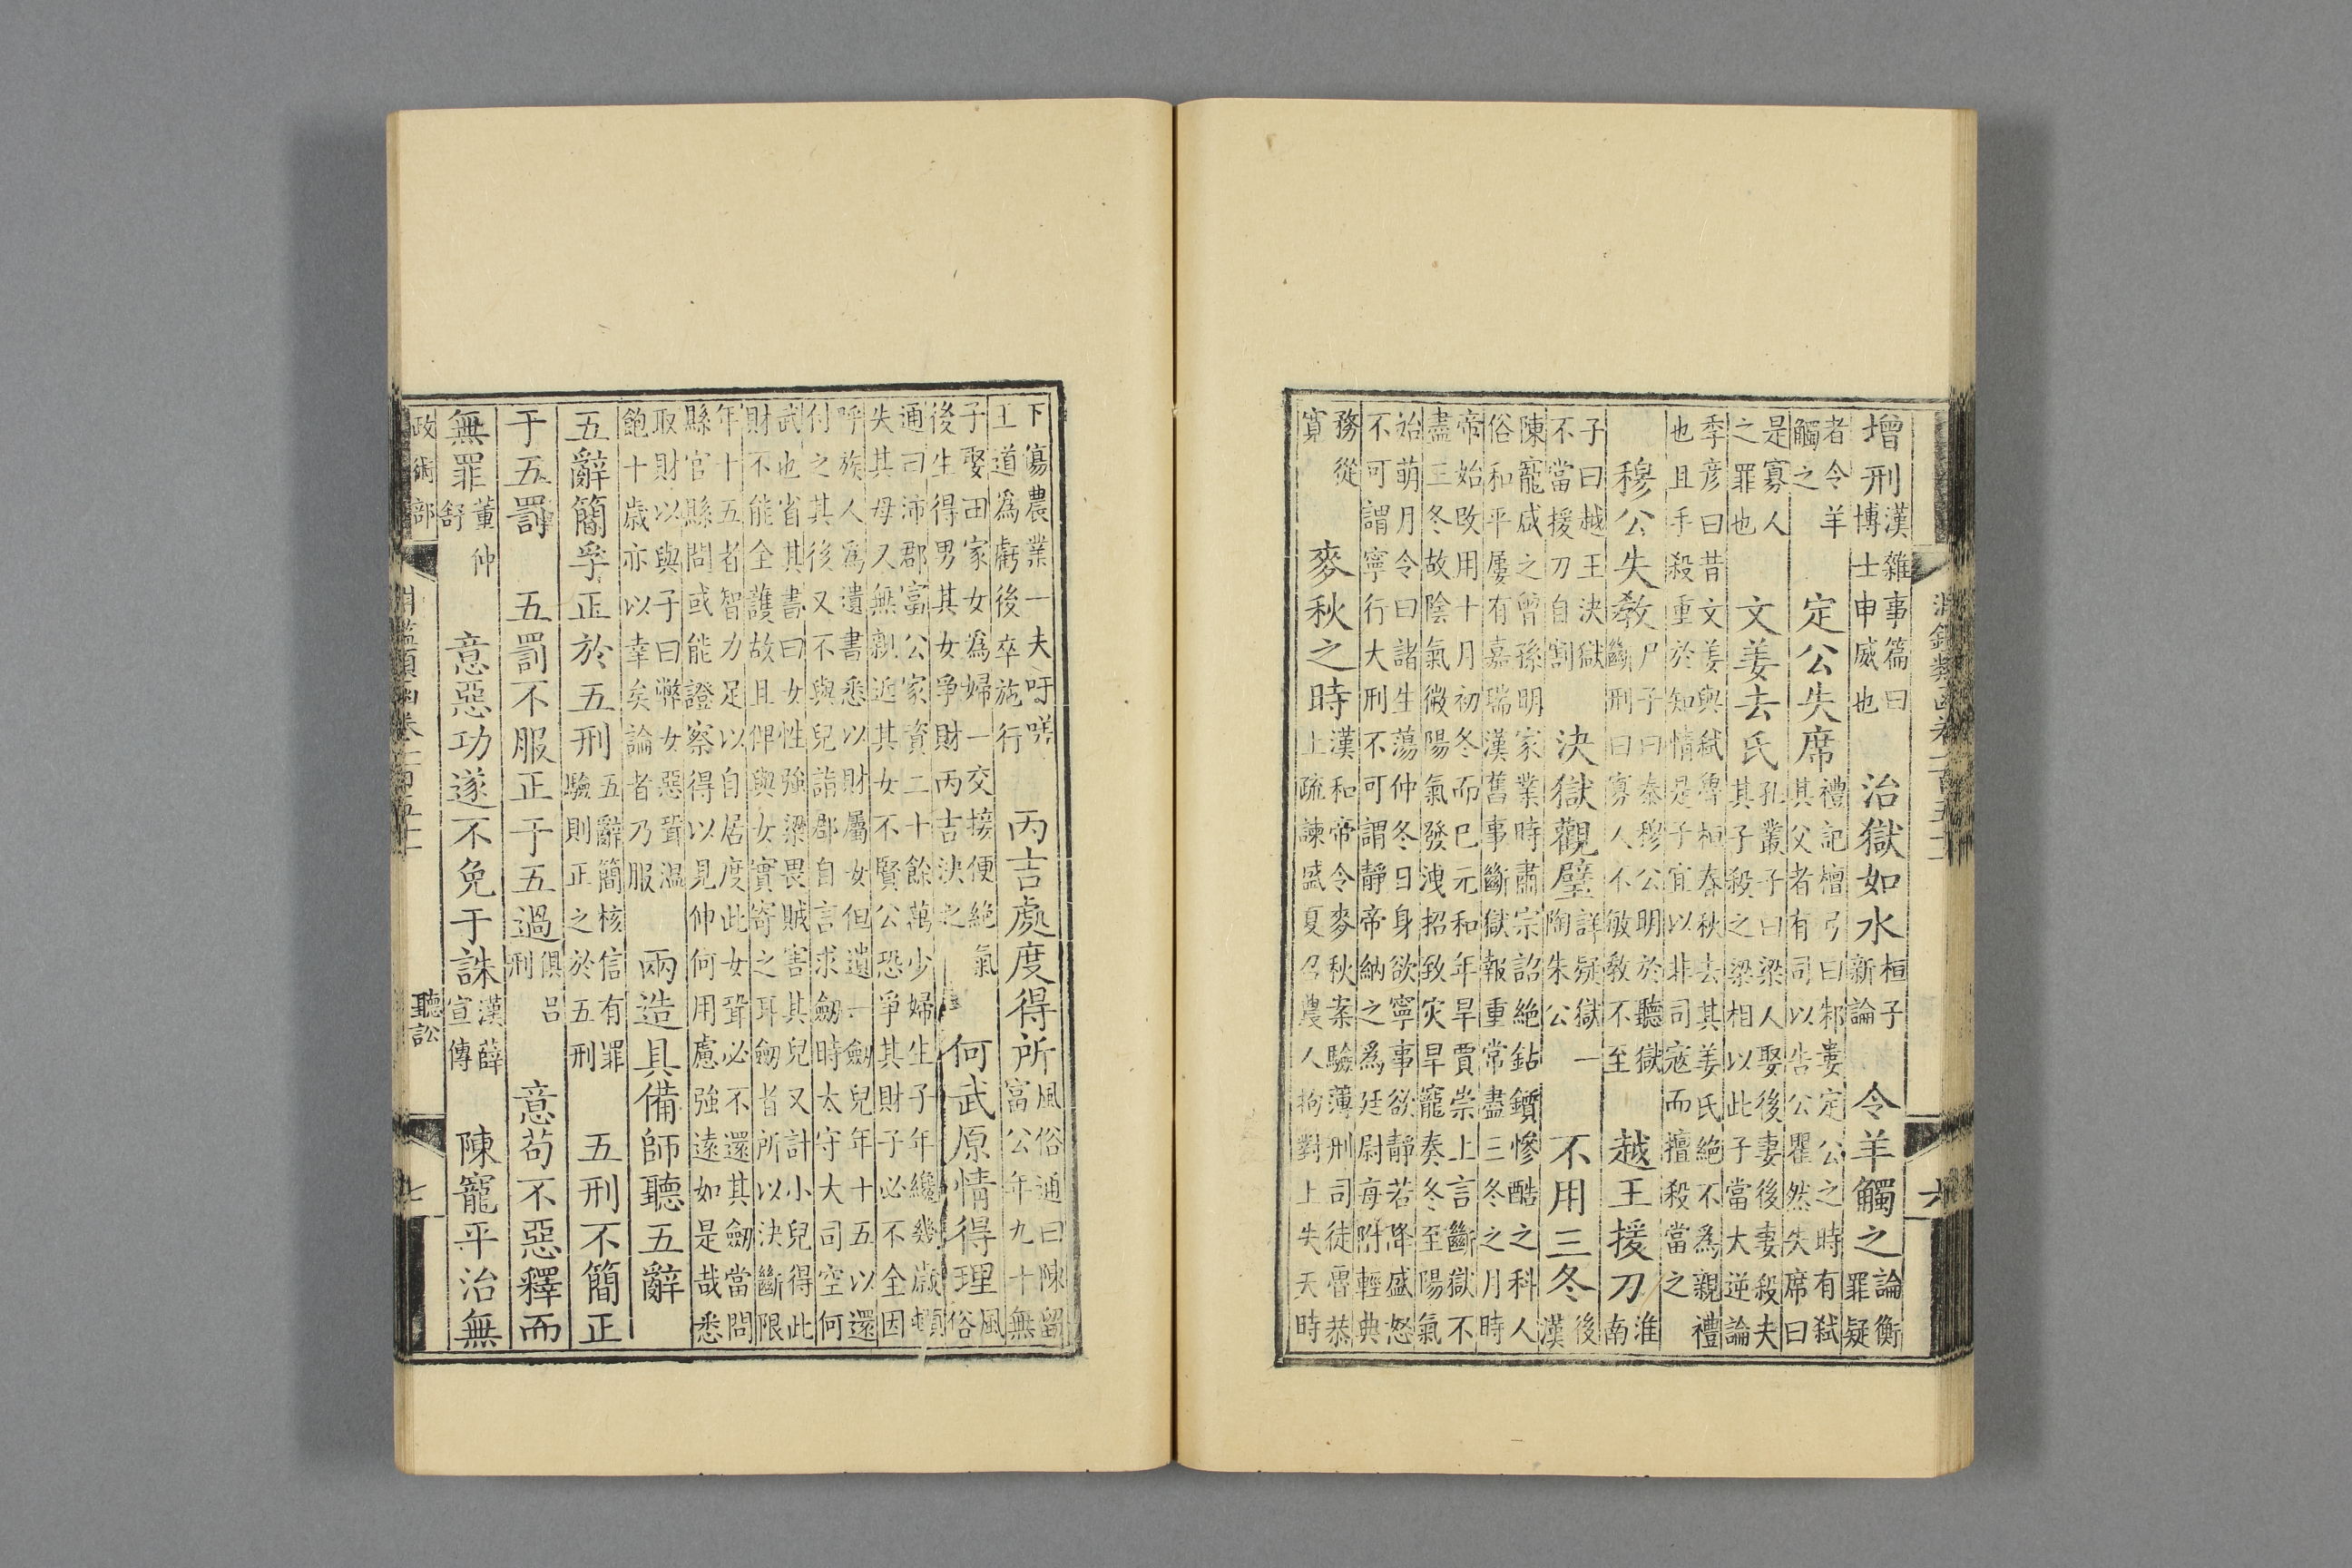 六
增刑漢雜事篇曰博士申威也 治獄如水桓子新論 令羊觸之論衡罪疑
者令羊觸之 定公失席禮記檀弓曰邾婁定公之時有弑其父者有司以告公瞿然失席曰
是寡人之罪也 文姜去氏孔叢子曰梁人娶後妻後妻殺夫其子殺之梁相以此子當大逆論
季彦曰昔文姜與弑魯桓春秋去其姜氏絕不為親禮也且手殺重於知情是子宜以非司寇而擅殺當之
穆公失教尸子曰秦穆公明於聽獄斷刑曰寡人不敏教不至 越王援刀淮南
子曰越王決獄不當援刀自割 決獄觀璧詳疑獄一陶朱公 不用三冬後漢
陳寵咸之曾孫明家業時肅宗詔絕鉆鑽慘酷之科人俗和平屢有嘉瑞漢舊事斷獄報重常盡三冬之月時
帝始改用十月初冬而巳元和年旱賈崇上言斷獄不盡三冬故陰氣微陽氣發洩招致災旱寵奏冬至陽氣
始萌月令曰諸生蕩仲冬日身欲寧事欲靜若降盛怒不可謂寧行大刑不可謂靜帝納之為廷尉每附輕典
務從寬 麥秋之時漢和帝令麥秋案驗薄刑司徒魯恭上疏諫盛夏召農人拘對上失天時
下傷農業一夫吁嗟王道為虧後卒施行 丙吉處度得所風俗通曰陳留富公年九十無
子娶田家女為婦一交接便絕氣後生得男其女爭財丙吉決之 何武原情得理風俗
通曰沛郡富公家資二十餘萬少婦生子年纔幾歲頓失其母又無親近其女不賢公恐爭其財子必不全因
呼族人為遺書悉以財屬女但遺一劒兒年十五以還付之其後又不與兒詣郡自言求劒時太守大司空何
武也省其書曰女性強梁畏賊害其兒又計小兒得此財不能全護故且俾與女實寄之耳劒者所以決斷限
年十五者智力足以自居度此女聟必不還其劒當問縣官縣問或能證察得以見伸何用慮強遠如是哉悉
取財以與子曰弊女惡聟溫飽十歲亦以幸矣論者乃服 兩造具備師聽五辭
五辭簡孚正於五刑五辭簡核信有罪驗則正之於五刑 五刑不簡正
于五罰 五罰不服正于五過俱呂刑 意苟不惡釋而
無罪董仲舒 意惡功遂不免于誅漢薛宣傳 陳寵平治無
政術部 聽訟 七